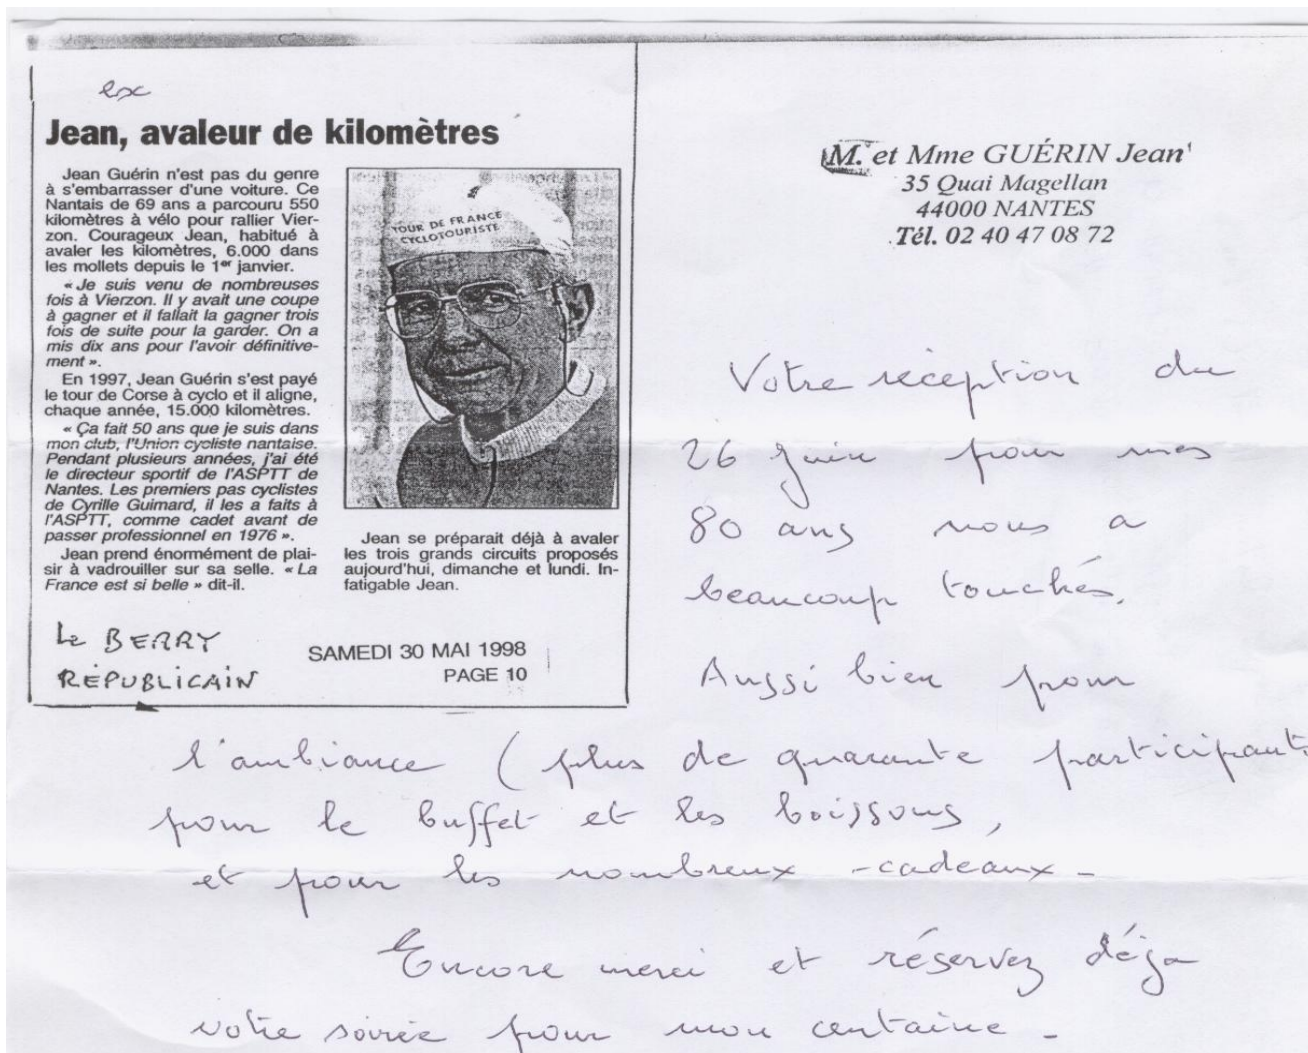 ex
Jean, avaleur de kilomètres
Jean Guérin n'est pas du genre
à s'embarrasser d'une voiture. Ce
Nantais de 69 ans a parcouru 550
kilomètres à vélo pour rallier Vier-
zon. Courageux Jean, habitué à
avaler les kilomètres, 6.000 dans
les mollets depuis le 1er janvier.
« Je suis venu de nombreuses
fois à Vierzon. Il y avait une coupe
à gagner et il fallait la gagner trois
fois de suite pour la garder. On a
mis dix ans pour l'avoir définitive-
ment ».
En 1997, Jean Guérin s'est payé
le tour de Corse à cyclo et il aligne,
chaque année, 15.000 kilomètres.
« Ça fait 50 ans que je suis dans
mon club, l'Union cycliste nantaise.
Pendant plusieurs années, j'ai été
le directeur sportif de l'ASPTT de
Nantes. Les premiers pas cyclistes
de Cyrille Guimard, il les a faits à
l'ASPTT, comme cadet avant de
passer professionnel en 1976 ».
Jean prend énormément de plai-
sir à vadrouiller sur sa selle. « La
France est si belle » dit-il.
TOUR DE FRANCE
CYCLOTOURISTE
Jean se préparait déjà à avaler
les trois grands circuits proposés
aujourd'hui, dimanche et lundi. In-
fatigable Jean.
Le BERRY
RÉPUBLICAIN
SAMEDI 30 MAI 1998
PAGE 10
M. et Mme GUÉRIN Jean
35 Quai Magellan
44000 NANTES
Tél. 02 40 47 08 72
Votre réception du
26 juin pour mes
80 ans nous a
beaucoup touchés.
Aussi bien pour
l'ambiance (plus de quarante participants
pour le buffet et les boissons,
et pour les nombreux cadeaux -
Encore merci et réservez déja
votre soirée pour mon centaine -